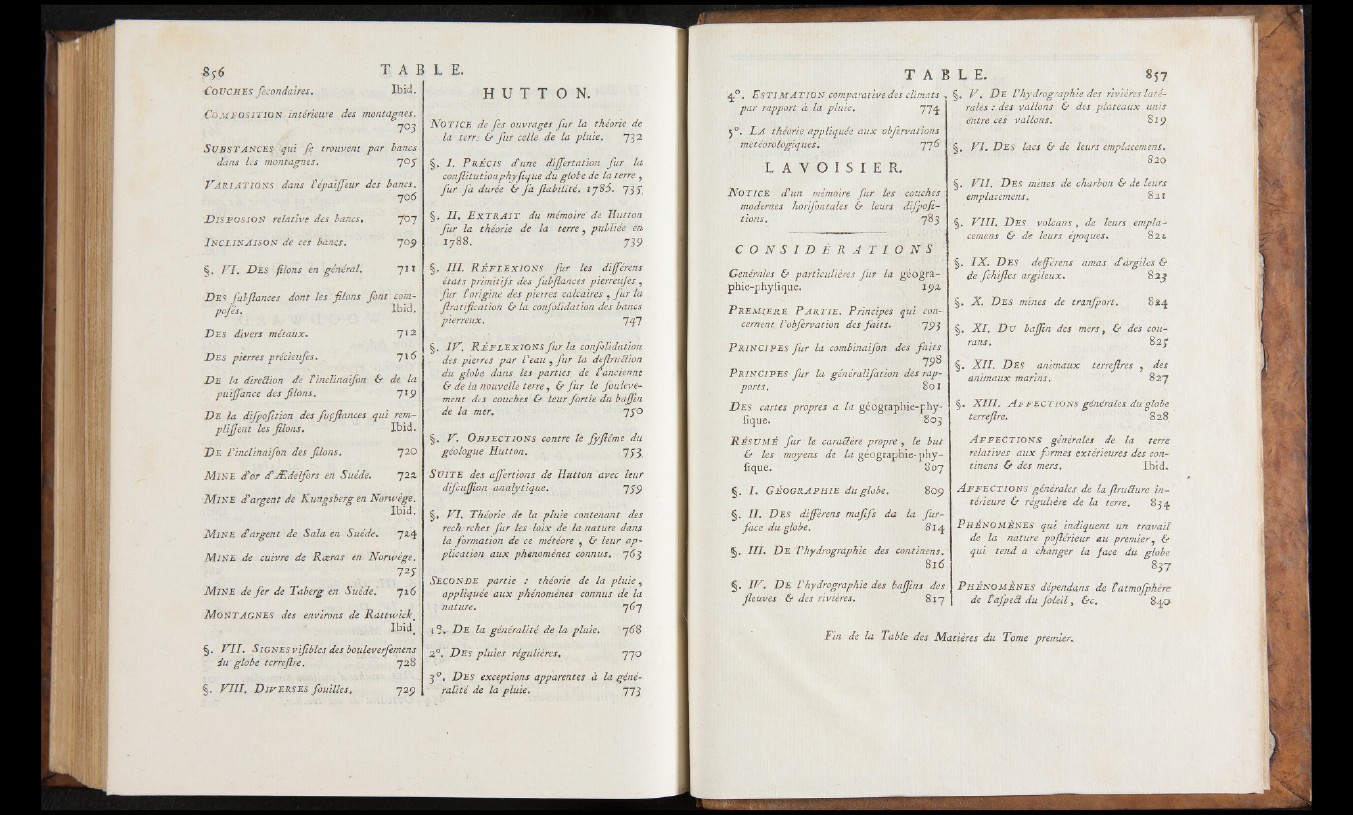 856 TABLE.
COUCHES ſecondaires. Ibid.
COMPOSITION intérieure des montagnes.
703
SUBSTANCES qui ſe trouvent par bancs
dans les montagnes. 705
VARIATIONS dans l'épaiſſeur des bancs.
706
DISPOSION relative des bancs. 707
INCLINAISON de ces bancs. 709
§. VI. DES filons en général. 711
DES ſubſtances dont les filons ſont com-
poſés. Ibid.
DES divers métaux. 712
DES pierres précieuſes. 716
DE la direction de l'inclinaiſon & de la
puiſſance des filons. 719
DE la diſpoſition des ſuçſtances qui rem-
pliſſent les filons. Ibid.
DE l'inclinaiſon des filons. 720
MINE d'or d'Ædelfors en Suéde. 722
MINE d'argent de Kungsberg en Norwège.
Ibid.
MINE d'argent de Sala en Suéde. 724
MINE de cuivre de Rœras en Norwége.
725
MINE de fer de Taberg en Suéde. 726
MONTAGNES des environs de Rattwick.
Ibid.
§. VII. SIGNES viſibles des bouleverſemens
du globe terreſtre. 728
§. VIII. DIVERSES fouilles. 729
HUTTON.
NOTICE de ſes ouvrages ſur la théorie de
la terre & ſur celle de la pluie. 732
§. I. PRÉCIS d'une diſſertation ſur la
conſtitution phyſique du globe de la terre,
ſur ſa durée & ſa ſtabilité. 1785. 735
§. II. EXTRAIT du mémoire de Hutton
ſur la théorie de la terre, publiée en
1788. 739
§. III. RÉFLEXIONS ſur les différens
états primitifs des ſubſtances pierreuſes,
ſur l'origine des pierres calcaires, ſur la
ſtratification & la conſolidation des bancs
pierreux. 747
§. IV. RÉFLEXIONS ſur la conſolidation
des pierres par l'eau, ſur la deſtruction
du globe dans les parties de l'ancienne
& de la nouvelle terre, & ſur le ſouleve-
ment des couches & leur ſortie du baſſin
de la mer. 750
§. V. OBJECTIONS contre le ſyſtéme du
géologue Hutton. 753
SUITE des aſſertions de Hutton avec leur
diſcuſſion analytique. 759
§. VI. Théorie de la pluie contenant des
recherches ſur les loix de la nature dans
la formation de ce météore, & leur ap-
plication aux phénomènes connus. 763
SECONDE partie : théorie de la pluie,
appliquée aux phénomènes connus de la
nature. 767
1°. DE la généralité de la pluie. 768
2°. DES pluies régulières. 770
3°. DES exceptions apparentes à la géné-
ralité de la pluie. 773
TABLE. 857
4°. ESTIMATION comparative des climats,
par rapport à la pluie. 774
5°. LA théorie appliquée aux obſervations
météorologiques. 776
LAVOISIER.
NOTICE d'un mémoire ſur les couches
modernes horiſontales & leurs diſpoſi-
tions. 783
CONSIDÉRATIONS
Générales & particulières ſur la géogra-
phie-phyſique. 192
PREMIERE PARTIE. Principes qui con-
cernent l'obſervation des faits. 793
PRINCIPES ſur la combinaiſon des faits
798
PRINCIPES ſur la généraliſation des rap-
ports. 801
DES cartes propres a la géographie-phy-
ſique. 803
RÉSUMÉ ſur le caractère propre, le but
& les moyens de la géographie-phy-
ſique. 807
§. I. GÉOGRAPHIE du globe. 809
§. II. DES différens maſifs da la ſur-
face du globe. 814
§. III. DE l'hydrographie des continens.
816
§. IV. DE l'hydrographie des baſſins des
fleuves & des rivières. 817
§. V. DE l'hydrographie des rivières laté-
rales : des vallons & des plateaux unis
entre ces vallons. 819
§. VI. DES lacs & de leurs emplacemens.
820
§. VII. DES mines de charbon & de leurs
emplacemens. 821
§. VIII. DES volcans, de leurs empla-
cemens & de leurs époques. 822
§. IX. DES defférens amas d'argiles &
de ſchiſtes argileux. 823
§. X. DES mines de tranſport. 824
§. XI. DU baſſin des mers, & des cou-
rans. 825
§. XII. DES animaux terreſtres, des
animaux marins. 827
§. XIII. AFFECTIONS générales du globe
terreſtre. 828
AFFECTIONS générales de la terre
relatives aux formes extérieures des con-
tinens & des mers. Ibid.
AFFECTIONS générales de la ſtructure in-
térieure & régulière de la terre. 834
PHÉNOMÈNES qui indiquent un travail
de la nature poſtérieur au premier, &
qui tend a changer la face du globe
837
PHÉNOMÈNES dépendans de l'atmoſphère
de l'aſpect du ſoleil, &c. 840
Fin de la Table des Matières du Tome premier.